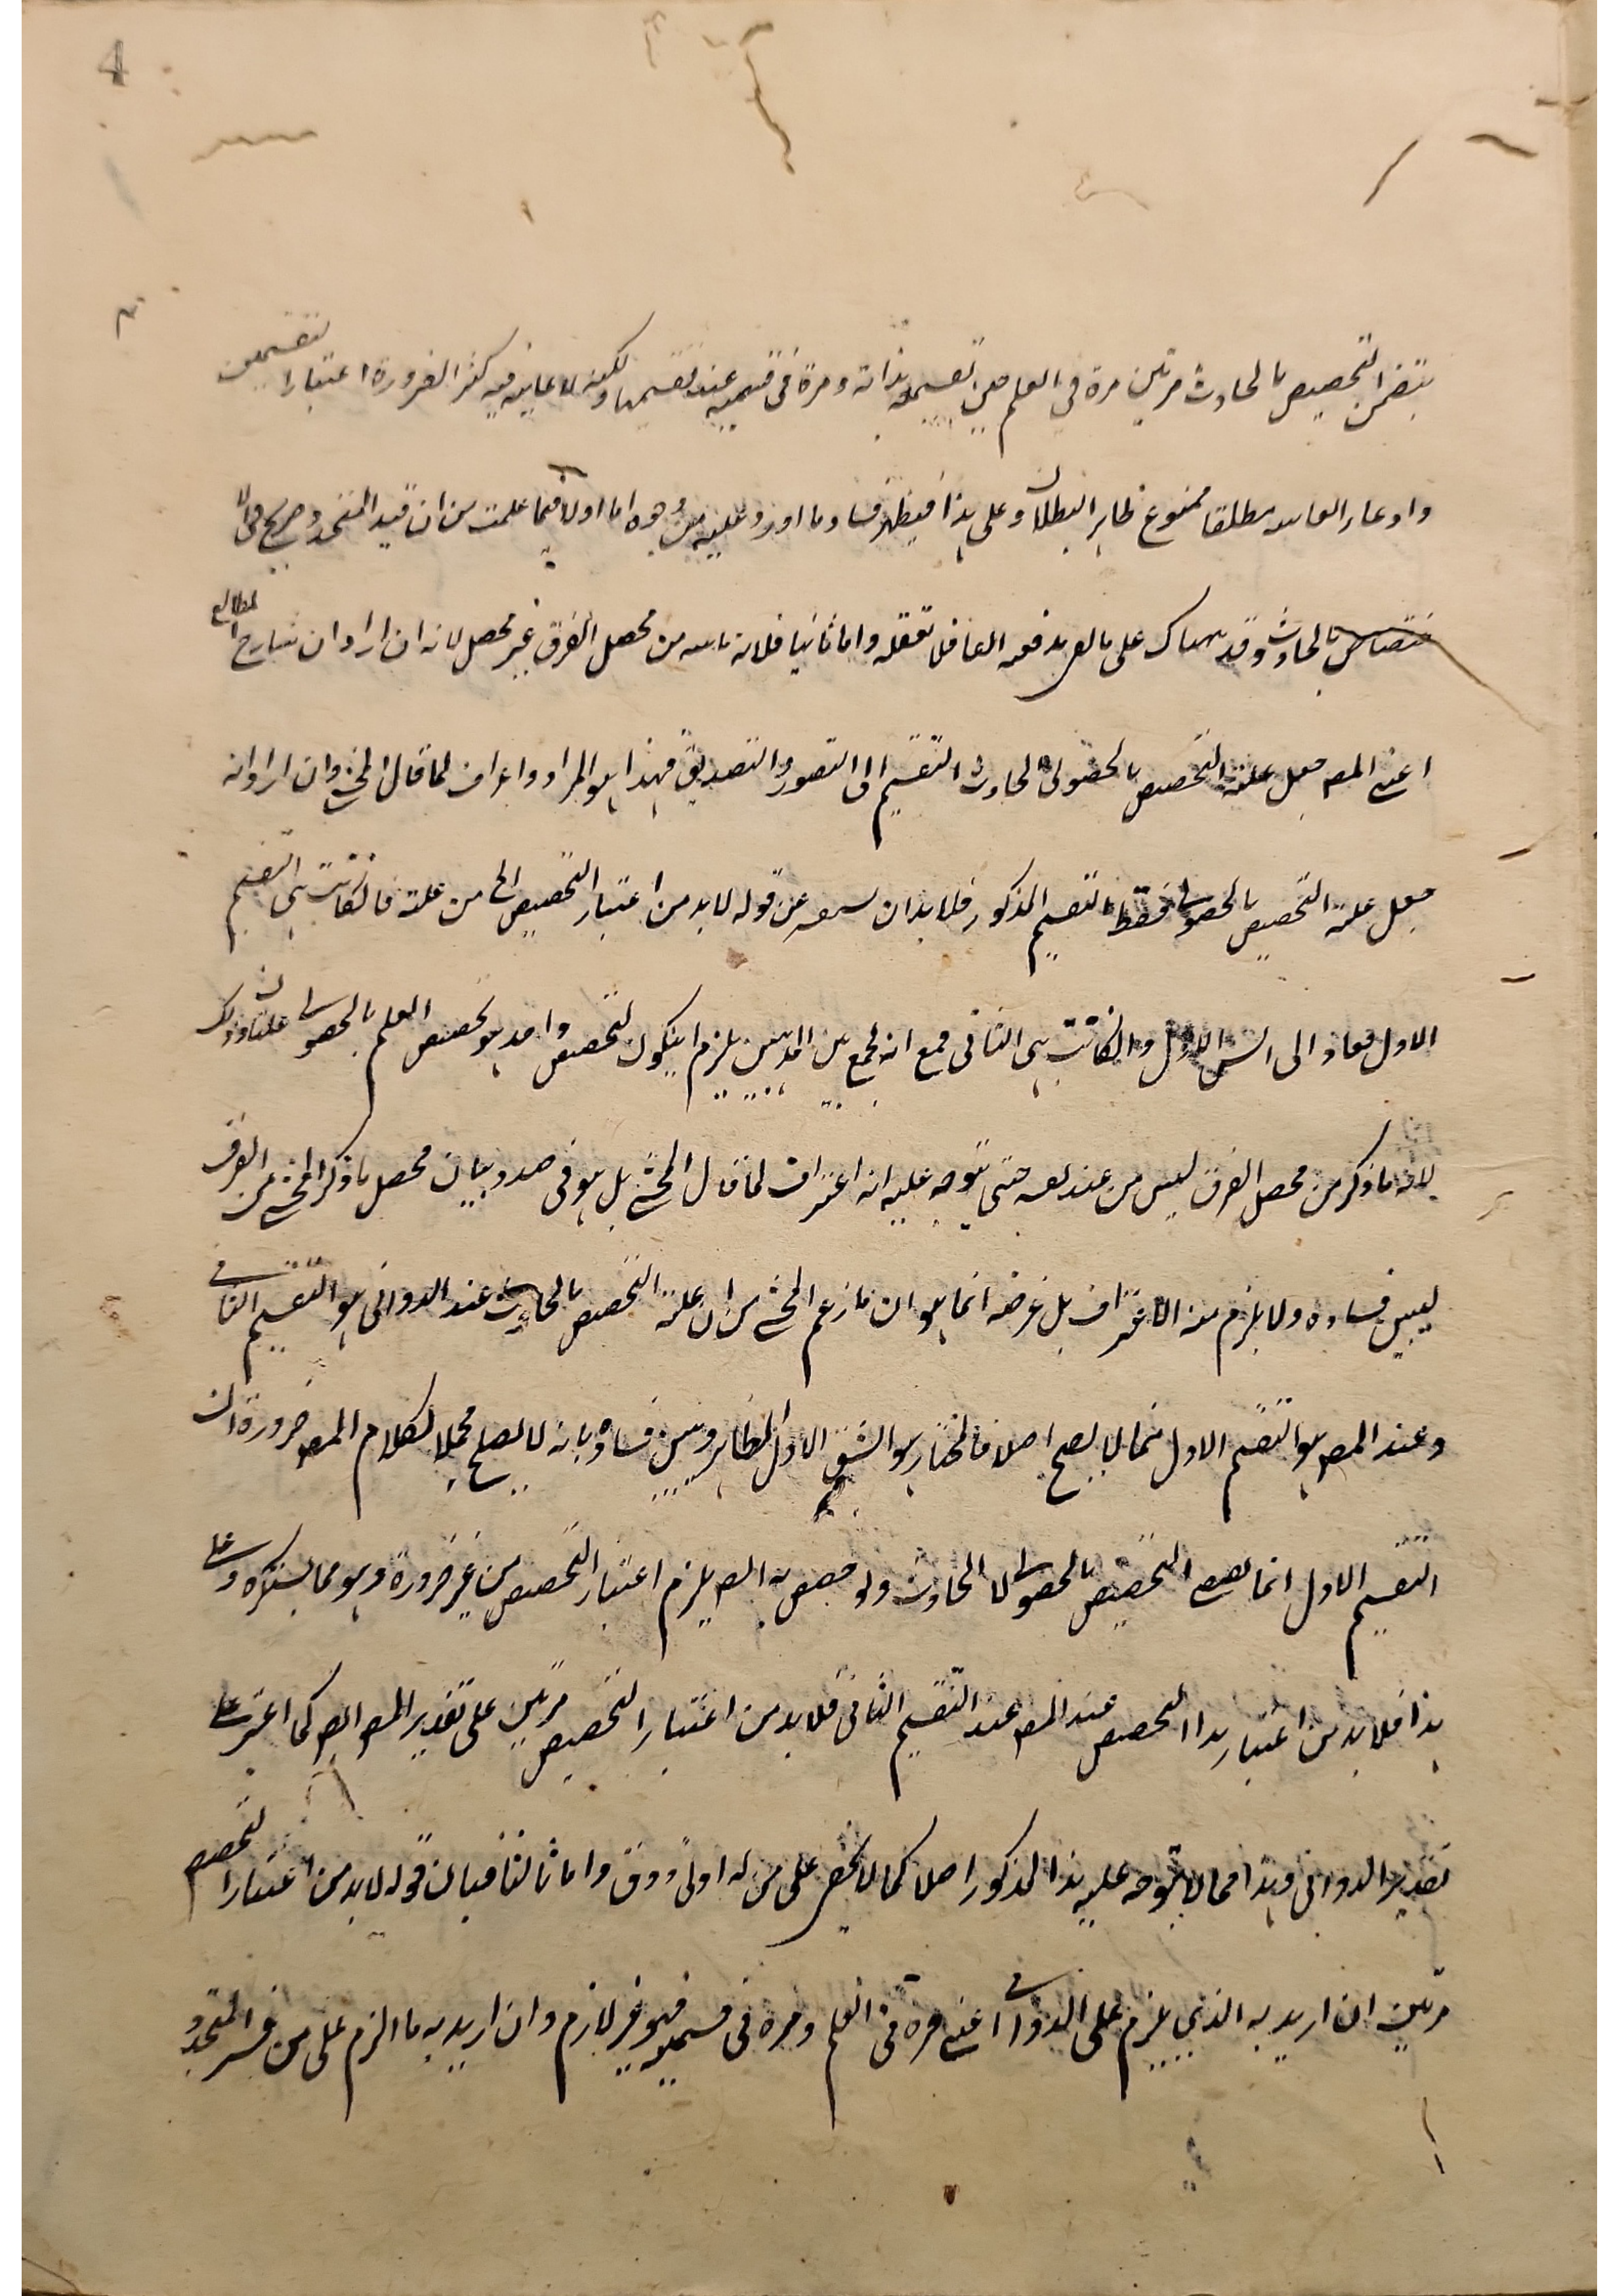 4
بتضمن التخصيص بالحادث مرتين مرة في العلم حين تقسيمه بذاته ومرة في قسميه عند تقسيمها ولكنه لا عائبة فيه كثر الضرورة اعتبار التقسيمين
وادعاء مطلقا ممنوع ظاهر البطلان وعلى هذا فيظهر فساد ما اورد عليه من وجوه اما اولا فبما علمت من ان قيد المتجدد صريح في الا
ختصاص بالحادث وقد على ما لم يدفعه الغافلا تغفله واما ثانيا فلانه من محصل الفرق غير محصل لانه ان اراد ان شارح المطالع
اعني المصر جعل علة التخصيص بالحصولي الحادث التقسيم الى التصور والتصديق فهذا هو المراد واعتراف لما قال المحشي وان اراد انه
جعل علة التخصيص بالحصولي فقط التقسيم المذكور فلا بد ان عن قوله لا بد من اعتبار التخصيص الخ من علة فان كانت هي التقسيم
الاول فعاد الى الشق الاول وان كانت هي الثاني فمع انه جمع بين المذهبين يلزم ان يكون لتخصيص واحد هو تخصيص العلم بالحصولي علتان وذلك
لانه ما ذكر من محصل الفرق ليس من عند نفسه حتى يتوجه عليه انه اعتراف لما قال المحشي بل هو في صدد بيان محصل ما ذكر المحشي من الفرق
ليبين فساده ولا يلزم منه الاعتراف بل غرضه انما هو ان ما زعم المحشي من ان علة التخصيص بالحادث عند الدواني هو التقسيم الثاني
وعند المصر هو التقسيم الاول مما لا يصح اصلا فالمختار هو الشق الاول الظاهر وتبين فساده بانه لا يصلح محملا لكلام المصر ضرورة ان
التقسيم الاول انما التخصيص بالحصولي لا الحادث ولو خصص به المصر يلزم اعتبار التخصيص من غير ضرورة وهو مما يستكره وعلى
هذا فلا بد من اعتبار هذا التخصيص عند المصر عند التقسيم الثاني فلا بد من اعتبار التخصيص مرتين على تقدير المصر ايضا كما اعترض على
تقدير الدواني وهذا مما لا يتوجه عليه هذا المذكور اصلا كما لا يخفى على من له ادنى ذوق واما ثالثا فبان قوله لا بد من اعتبار التخصيص
مرتين ان اريد به الذي يلزم على الدواني اعني مرة في العلم ومرة في قسميه فهو غير لازم وان اريد به ما الزم على من فسر المتجدد